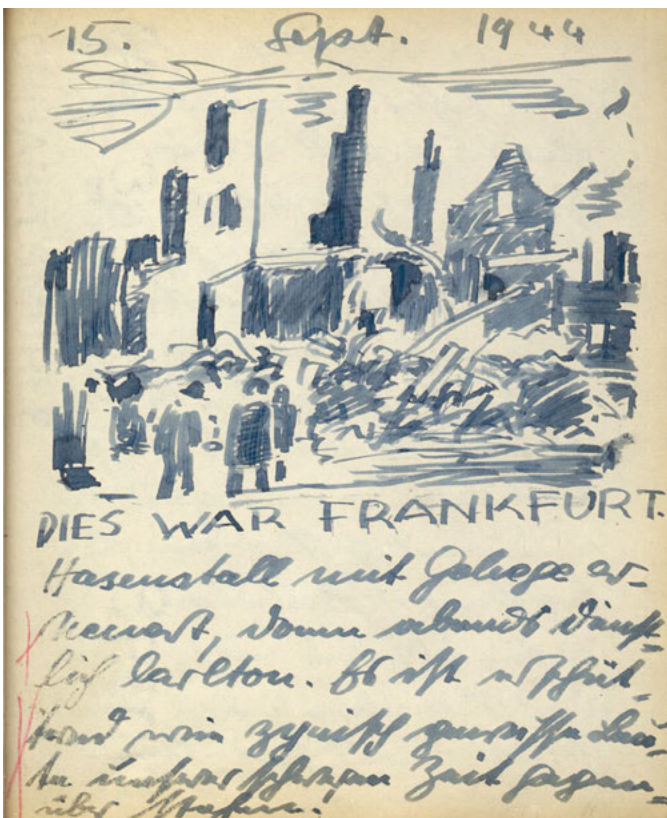 15. Sept. 1944
DIES WAR FRANKFURT.
Hasenstall mit Gehege er-
neuert, dann abends dienst-
lich Carlton. Es ist erschüt-
ternd wie zynisch gewisse Leu-
te unserer schweren Zeit gegen-
über stehen!